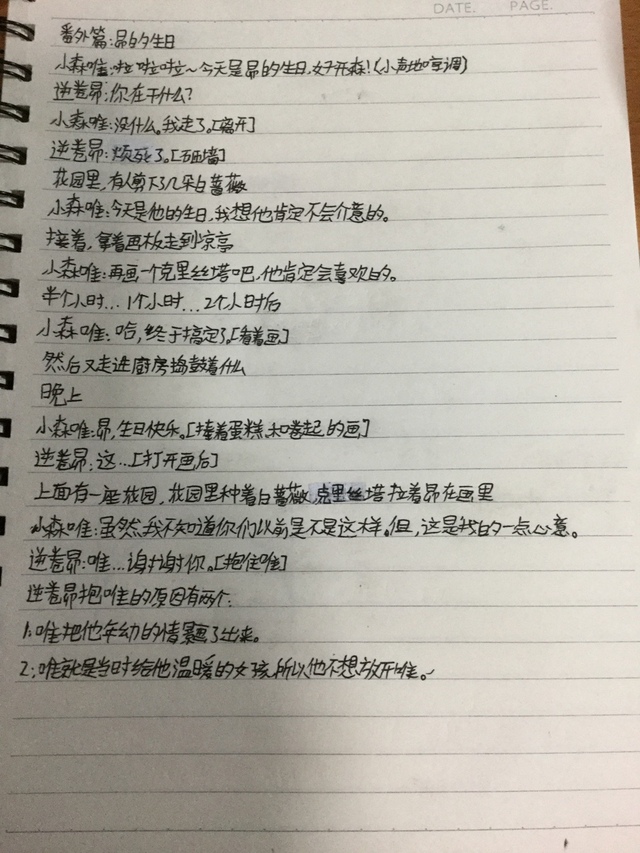 DATE. PAGE.
番外篇:昴的生日
小森唯:啦啦啦~今天是昴的生日,好开森!(小声地哼调)
逆卷昴:你在干什么?
小森唯:没什么。我走了。[离开]
逆卷昴:烦死了。[砸墙]
花园里,有人剪下了几朵白蔷薇
小森唯:今天是他的生日,我想他肯定不会介意的。
接着,拿着画板走到凉亭
小森唯:再画一个克里丝塔吧,他肯定会喜欢的。
半个小时…1个小时…2个小时后
小森唯:哈,终于搞定了。[看着画]
然后又走进厨房捣鼓着什么
晚上
小森唯:昴,生日快乐。[捧着蛋糕和卷起的画]
逆卷昴:这…[打开画后]
上面有一座花园,花园里种着白蔷薇,克里丝塔拉着昴在画里
小森唯:虽然我不知道你们以前是不是这样。但,这是我的一点心意。
逆卷昴:唯…谢谢你。[抱住唯]
逆卷昴抱唯的原因有两个:
1:唯把他年幼的情景画了出来。
2:唯就是当时给他温暖的女孩,所以他不想放开唯。